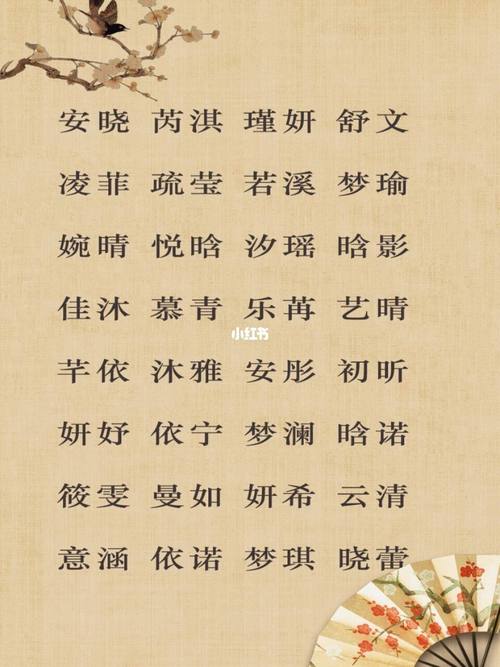 安晓 芮淇 瑾妍 舒文
凌菲 疏莹 若溪 梦瑜
婉晴 悦晗 汐瑶 晗影
佳沐 慕青 乐苒 艺晴
小红书
芊依 沐雅 安彤 初昕
妍妤 依宁 梦澜 晗诺
筱雯 曼如 妍希 云清
意涵 依诺 梦琪 晓蕾